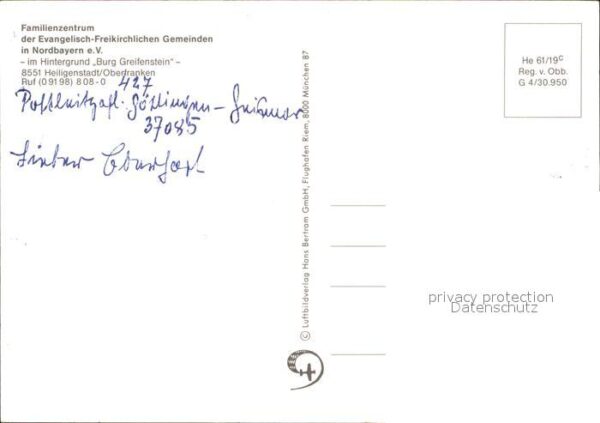 Familienzentrum
der Evangelisch-Freikirchlichen Gemeinden
in Nordbayern e.V.
– im Hintergrund „Burg Greifenstein" –
8551 Heiligenstadt/Oberfranken
Ruf (09198) 808-0
427
Postleitzahl. Göttingen – Geismar
37085
Lieber Eberhard
© Luftbildverlag Hans Bertram GmbH, Flughafen Riem, 8000 München 87
He 61/19c
Reg. v. Obb.
G 4/30.950
privacy protection
Datenschutz